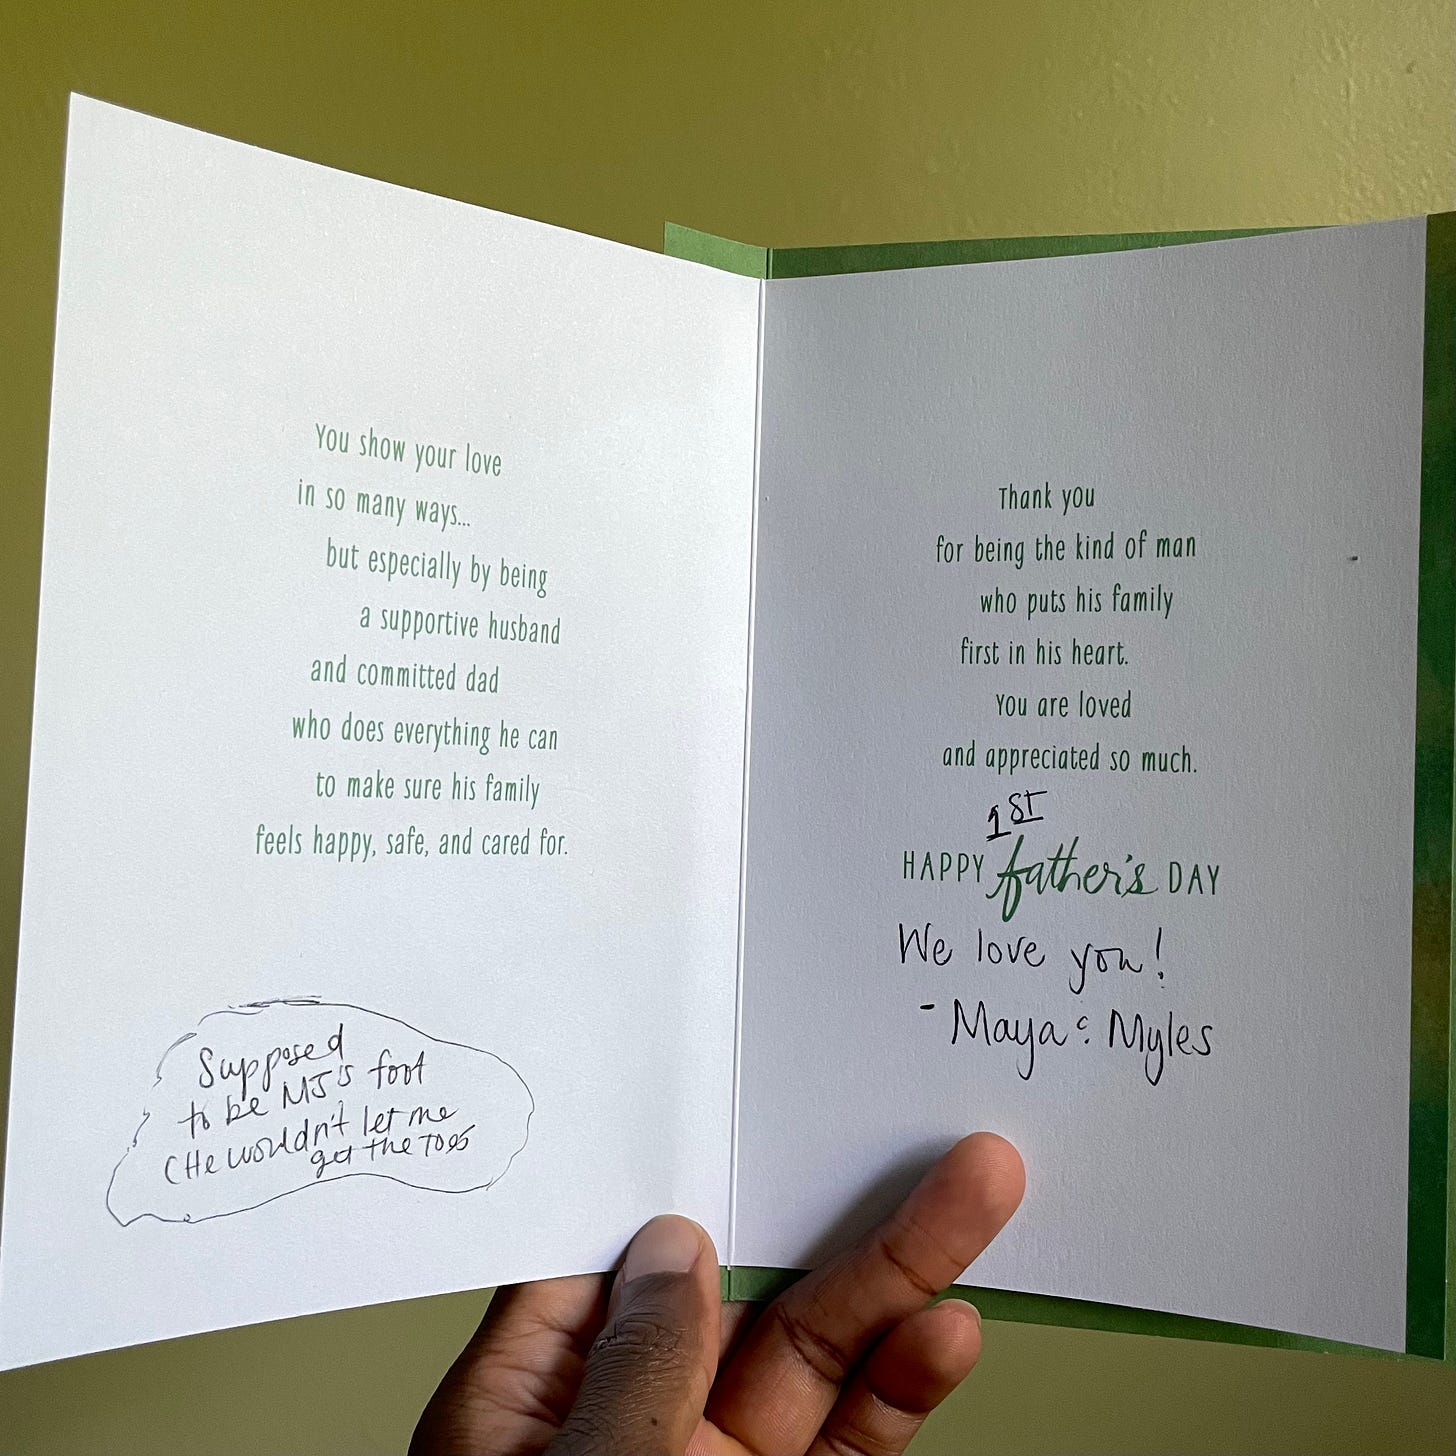 You show your love
in so many ways...
but especially by being
a supportive husband
and committed dad
who does everything he can
to make sure his family
feels happy, safe, and cared for.
Supposed
to be MJ's foot
(He wouldn't let me
get the Toes
Thank you
for being the kind of man
who puts his family
first in his heart.
You are loved
and appreciated so much.
1ST
HAPPY father's DAY
We love you!
- Maya & Myles